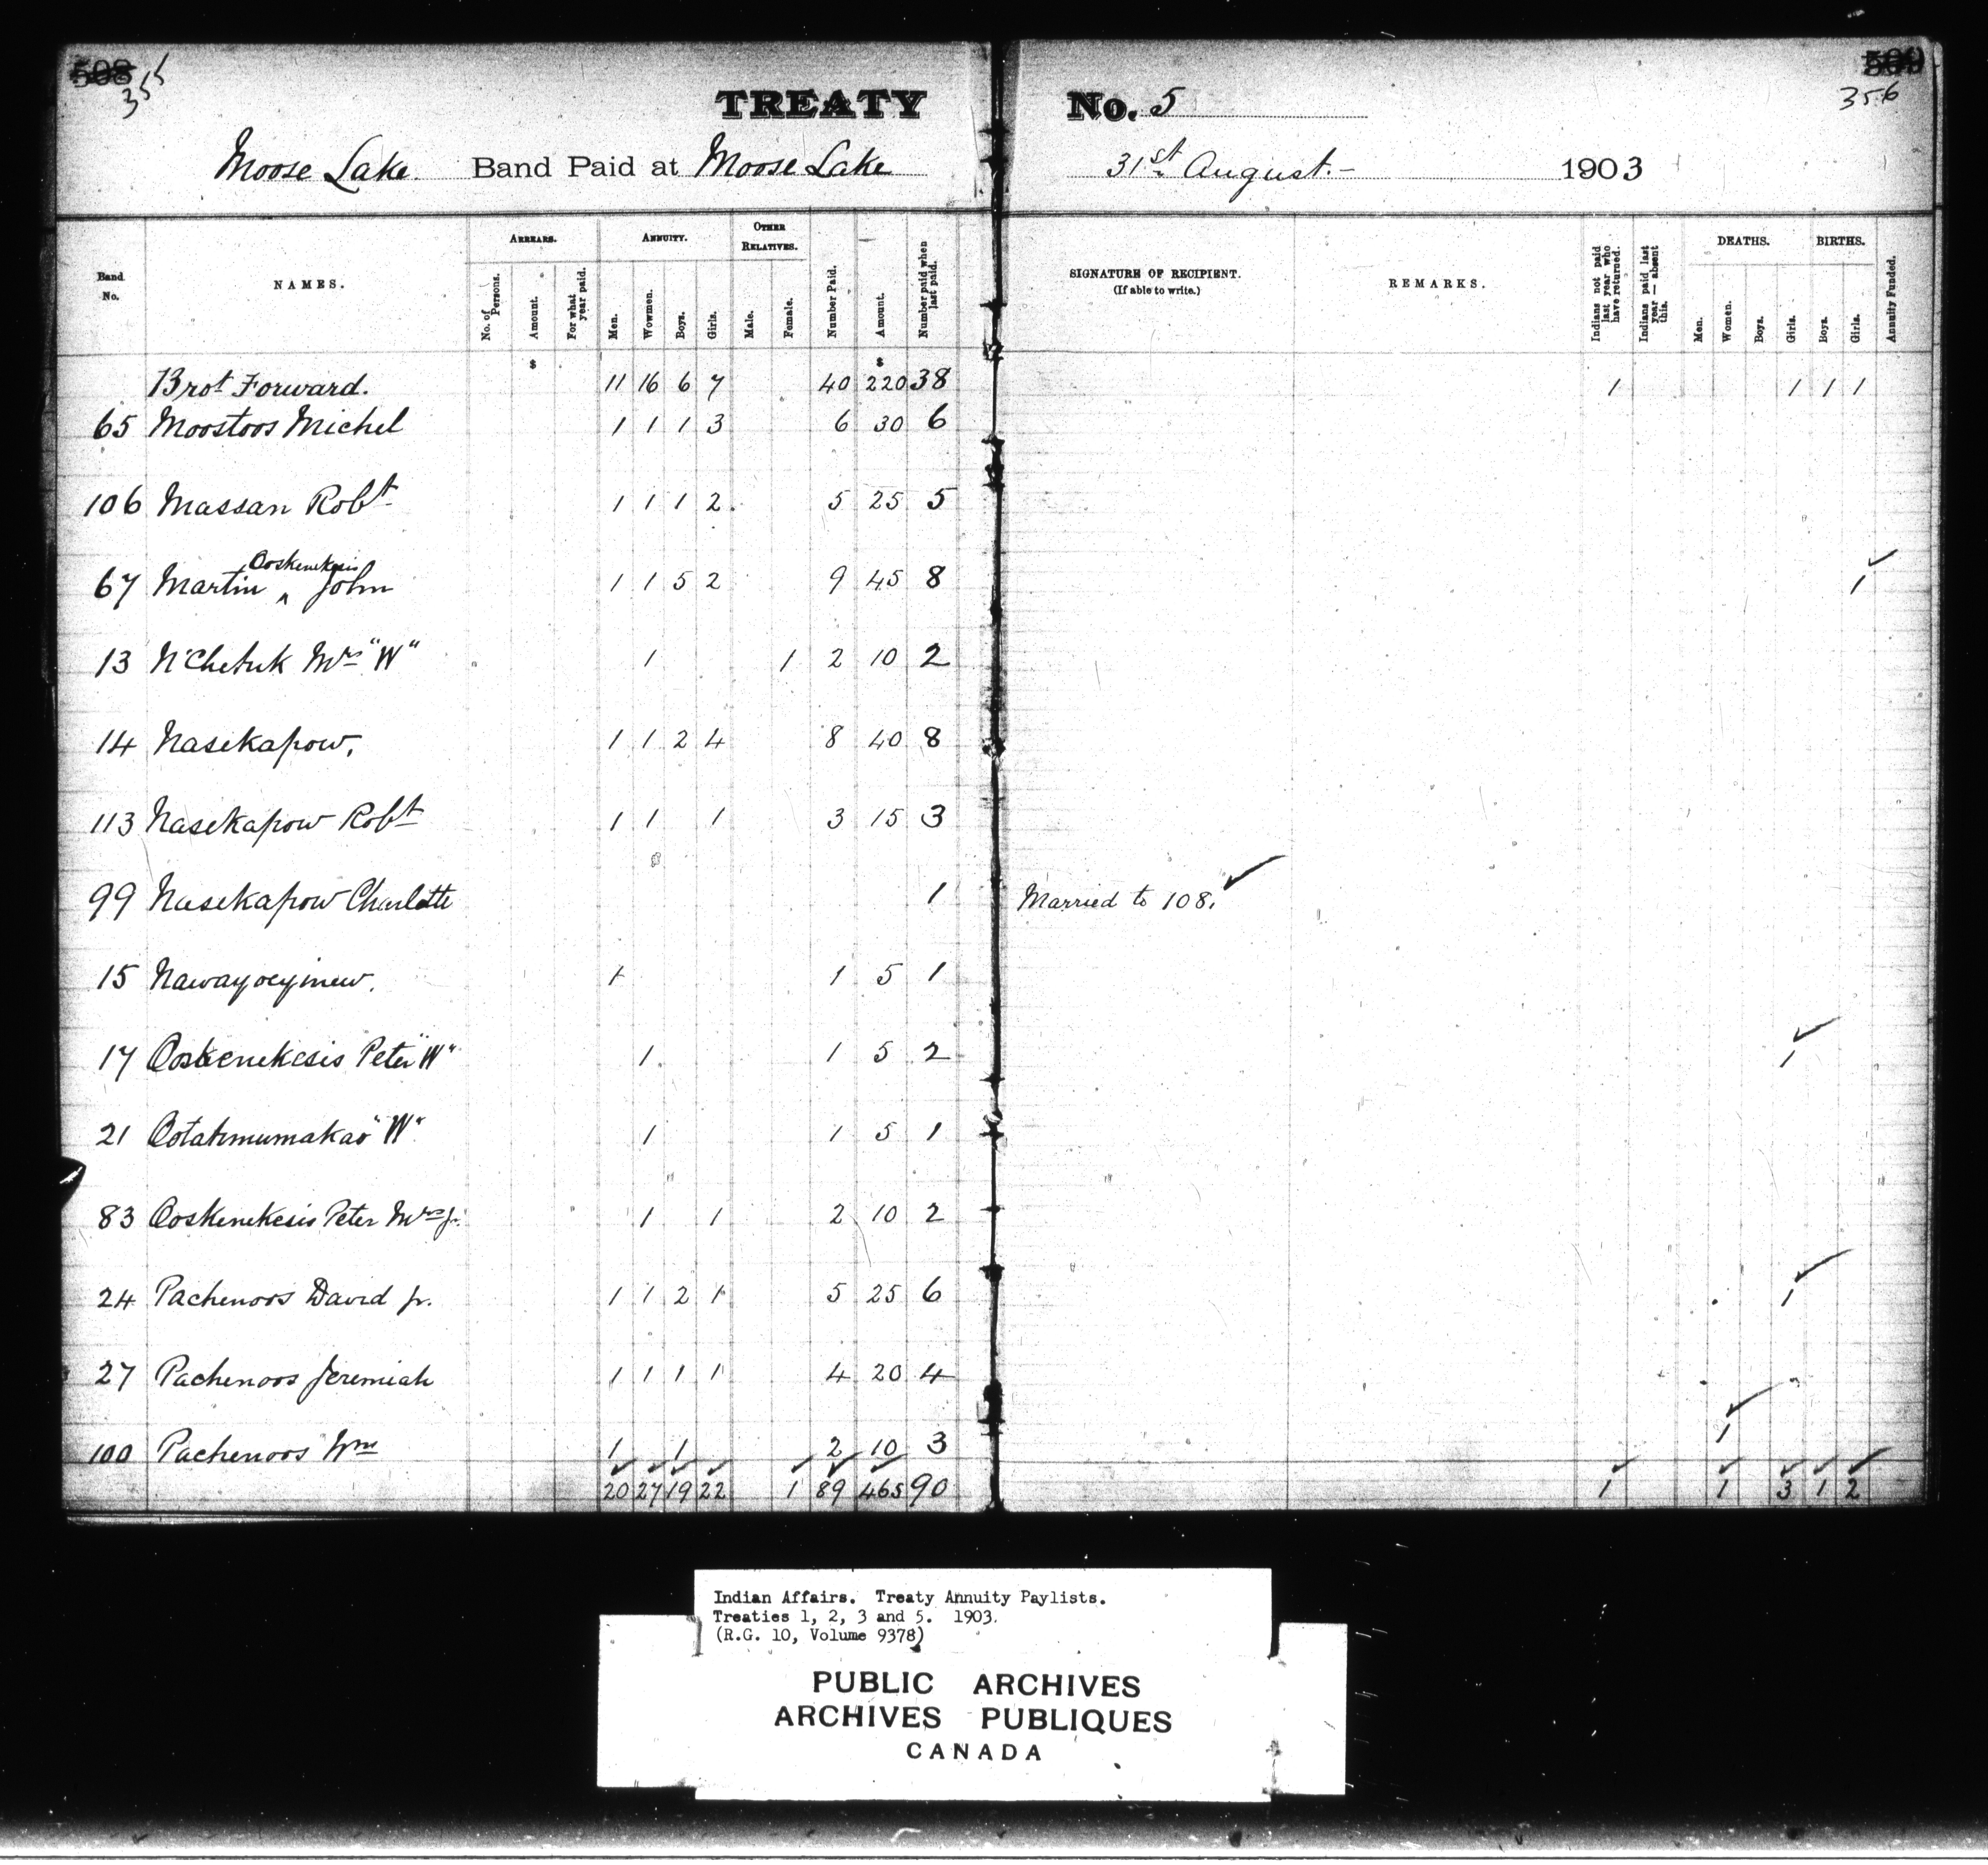 355
356
TREATY No. 5
Moose Lake Band Paid at Moose Lake 31st August.- 1903
Band No.
NAMES.
ARREARS.
No. of Persons.
Amount.
For what year paid.
ANNUITY.
Men.
Wowmen.
Boys.
Girls.
OTHER RELATIVES.
Male.
Female.
Number Paid.
Amount.
Number paid when last paid.
SIGNATURE OF RECIPIENT.
(If able to write.)
REMARKS.
Indians not paid last year who have returned.
Indians paid last year — absent this.
DEATHS.
Men.
Women.
Boys.
Girls.
BIRTHS.
Boys.
Girls.
Annuity Funded.
$ $
Brot Forward. 11 16 6 7 40 220 38 1 1 1 1
65 Moostoos Michel 1 1 1 3 6 30 6
106 Massan Robt 1 1 1 2 5 25 5
67 Martin ^ Ooskenekesis John 1 1 5 2 9 45 8 1
13 N'Chetuk Mrs "W" 1 1 2 10 2
14 Nasekapow. 1 1 2 4 8 40 8
113 Nasekapow Robt 1 1 1 3 15 3
99 Nasekapow Charlotte 1 Married to 108.
15 Nawayoeyinew. 1 1 5 1
17 Ooskenekesis Peter "W" 1 1 5 2 1
21 Ootatimumakao "W" 1 1 5 1
83 Ooskenekesis Peter Mrs Jr. 1 1 2 10 2
24 Pachenoos David Jr. 1 1 2 1 5 25 6 1
27 Pachenoos Jeremiah 1 1 1 1 4 20 4
100 Pachenoos Wm 1 1 2 10 3 1
20 27 19 22 1 89 465 90 1 1 3 1 2
Indian Affairs. Treaty Annuity Paylists.
Treaties 1, 2, 3 and 5. 1903.
(R.G. 10, Volume 9378)
PUBLIC ARCHIVES
ARCHIVES PUBLIQUES
CANADA